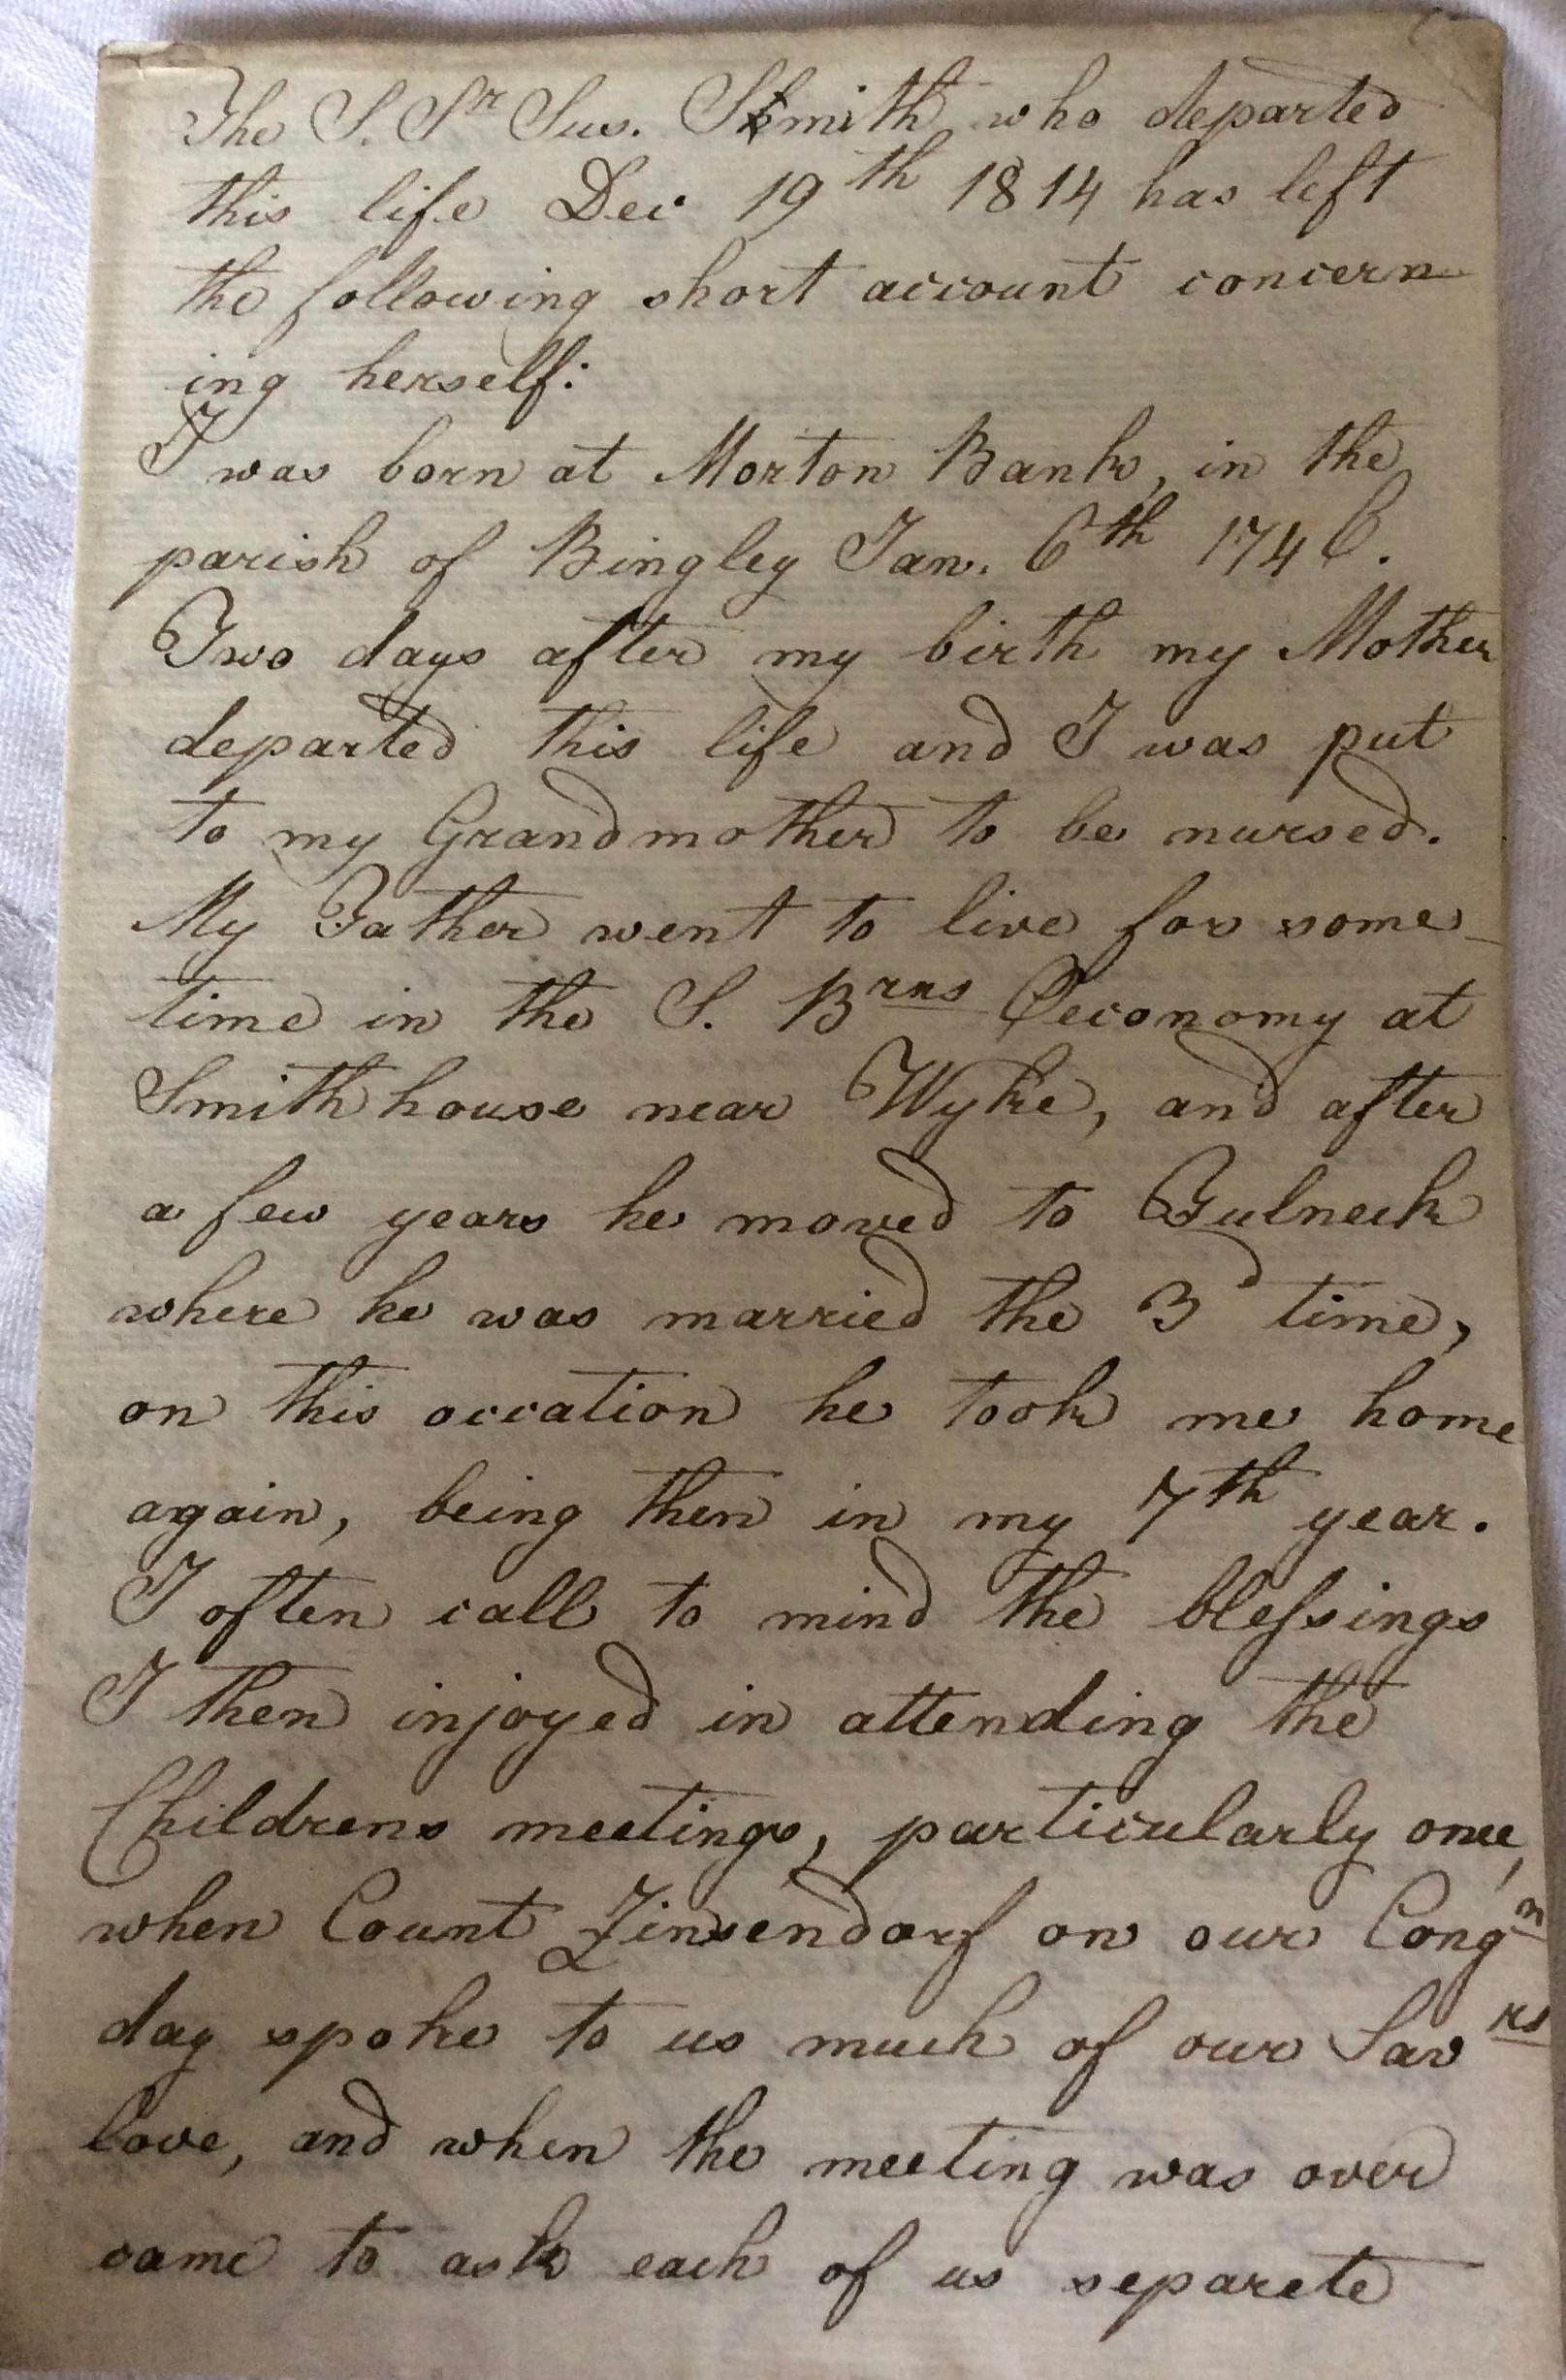 The S. Sr Sus. Smith who departed
this life Dec 19th 1814 has left
the following short account concern
ing herself:
I was born at Morton Bank, in the
parish of Bingley Jan. 6th 1746.
Two days after my birth my Mother
departed this life and I was put
to my Grandmother to be nursed.
My Father went to live for some-
time in the S. Brns Oeconomy at
Smith house near Wyke, and after
a few years he moved to Fulneck
where he was married the 3d time,
on this occation he took me home
again, being then in my 7th year.
I often call to mind the blessings
I then injoyed in attending the
Childrens meetings, particularly once,
when Count Zinsendorf on our Congn
day spoke to us much of our Savrs
love, and when the meeting was over
came to ask each of us separete